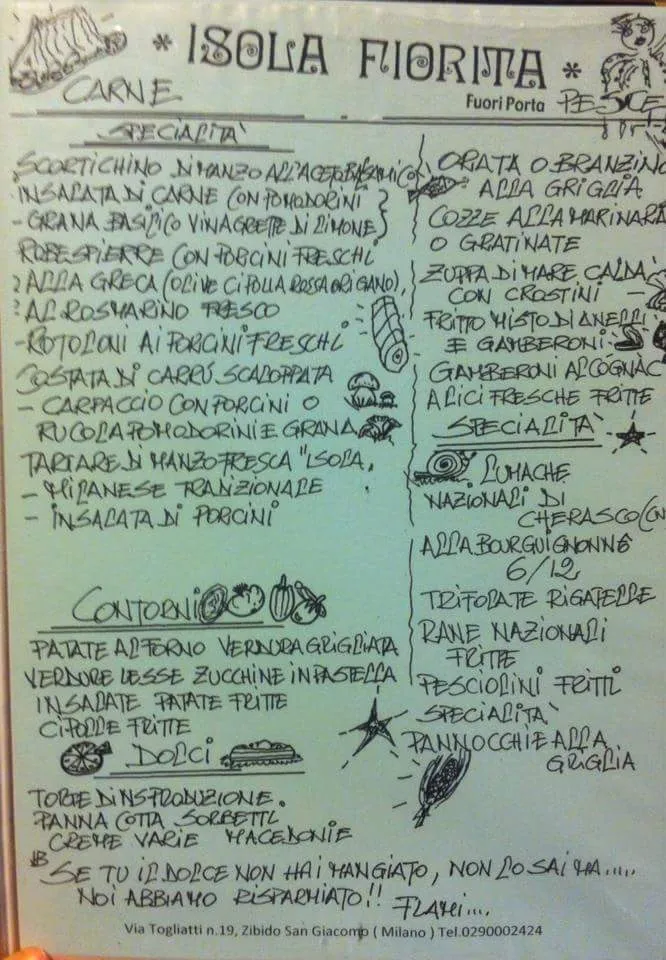 * ISOLA FIORITA *
Fuori Porta
CARNE
SPECIALITA'
SCORTICHINO DI MANZO ALL'ACETO BALSAMICO
INSALATA DI CARNE CON POMODORINI
- GRANA BASILICO VINAGRETTE DI LIMONE
ROBESPIERRE CON PORCINI FRESCHI
ALLA GRECA (OLIVE CIPOLLA ROSSA ORIGANO),
AL ROSMARINO FRESCO
- ROTOLONI AI PORCINI FRESCHI
COSTATA DI CARRÚ SCALOPPATA
- CARPACCIO CON PORCINI O
RUCOLA POMODORINI E GRANA
TARTARE DI MANZO FRESCA "ISOLA,
- MILANESE TRADIZIONALE
- INSALATA DI PORCINI
CONTORNI
PATATE AL FORNO VERDURA GRIGLIATA
VERDURE LESSE ZUCCHINE IN PASTELLA
INSALATE PATATE FRITTE
CIPOLLE FRITTE
DOLCI
TORTE DI NS PRODUZIONE.
PANNA COTTA SORBETTI
CREME VARIE MACEDONIE
PESCE
ORATA O BRANZINO
ALLA GRIGLIA
COZZE ALLA MARINARA
O GRATINATE
ZUPPA DI MARE CALDA
CON CROSTINI
FRITTO MISTO DI ANELLI
E GAMBERONI
GAMBERONI AL COGNAC
ALICI FRESCHE FRITTE
SPECIALITA'
LUMACHE
NAZIONALI DI
CHERASCO (CN
ALLA BOURGUIGNONNE
6/12
TRIFOLATE RIGATELLE
RANE NAZIONALI
FRITTE
PESCIOLINI FRITTI
SPECIALITA'
PANNOCCHIE ALLA
GRIGLIA
NB SE TU IL DOLCE NON HAI MANGIATO, NON LO SAI MA.....
NOI ABBIAMO RISPARMIATO!!
Via Togliatti n.19, Zibido San Giacomo ( Milano ) Tel.0290002424